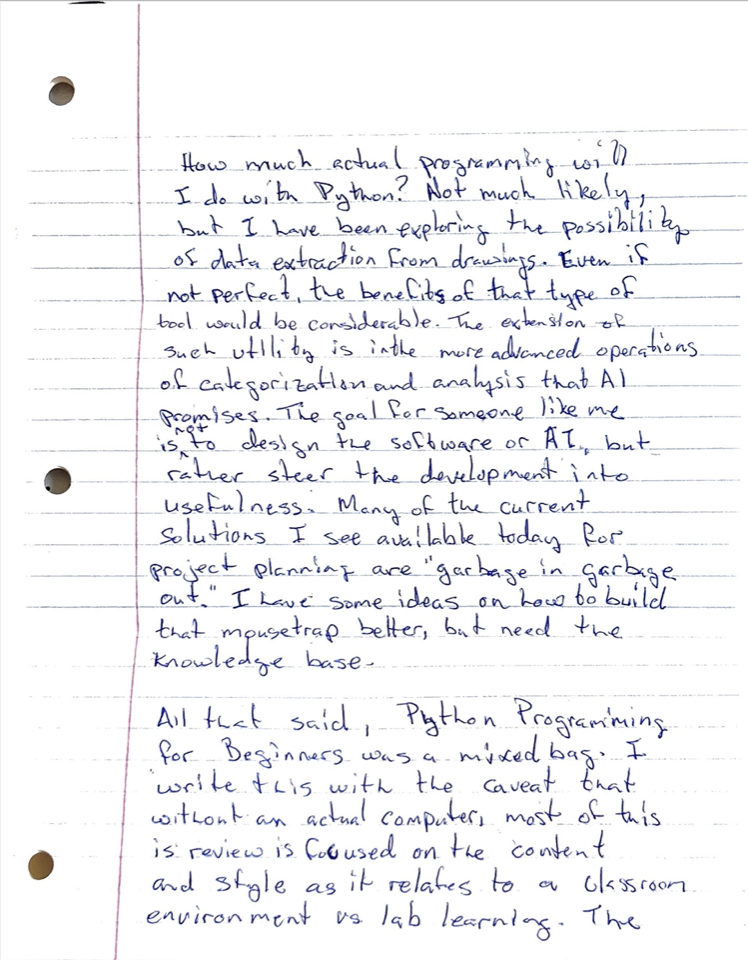 How much actual programming will
I do with Python? Not much likely,
but I have been exploring the possibility
of data extraction from drawings. Even if
not perfect, the benefits of that type of
tool would be considerable. The extension of
such utility is in the more advanced operations
of categorization and analysis that AI
promises. The goal for someone like me
is not to design the software or AI, but
rather steer the development into
usefulness. Many of the current
solutions I see available today for
project planning are "garbage in garbage
out." I have some ideas on how to build
that mousetrap better, but need the
knowledge base.
All that said, Python Programming
for Beginners was a mixed bag. I
write this with the caveat that
without an actual computer, most of this
is review is focused on the content
and style as it relates to a classroom
environment vs lab learning. The